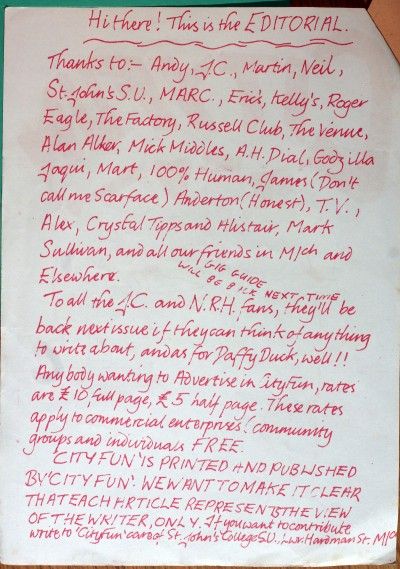 Hi there! This is the EDITORIAL.
Thanks to:- Andy, J.C., Martin, Neil,
St. John's S.U., MARC., Eric's, Kelly's, Roger
Eagle, The Factory, Russell Club, The Venue,
Alan Alker, Mick Middles, A.H. Dial, Godzilla
Jaqui, Mart, 100% Human, James (Don't
call me Scarface) Anderton (Honest), T.V.,
Alex, Crystal Tipps and Alistair, Mark
Sullivan, and all our friends in M/ch and
Elsewhere.
GIG GUIDE
WILL BE BACK NEXT TIME
To all the J.C. and N.R.H. fans, they'll be
back next issue if they can think of anything
to write about, and as for Daffy Duck, well!!
Anybody wanting to Advertise in CityFun, rates
are £10, full page, £5 half page. These rates
apply to commercial enterprises. community
groups and individuals FREE.
'CITY FUN' IS PRINTED AND PUBLISHED
BY 'CITY FUN'. WE WANT TO MAKE IT CLEAR
THAT EACH ARTICLE REPRESENTS THE VIEW
OF THE WRITER, ONLY. If you want to contribute
write to 'City Fun' care of St. John's College S.U., Lwr. Hardman St. M/ch